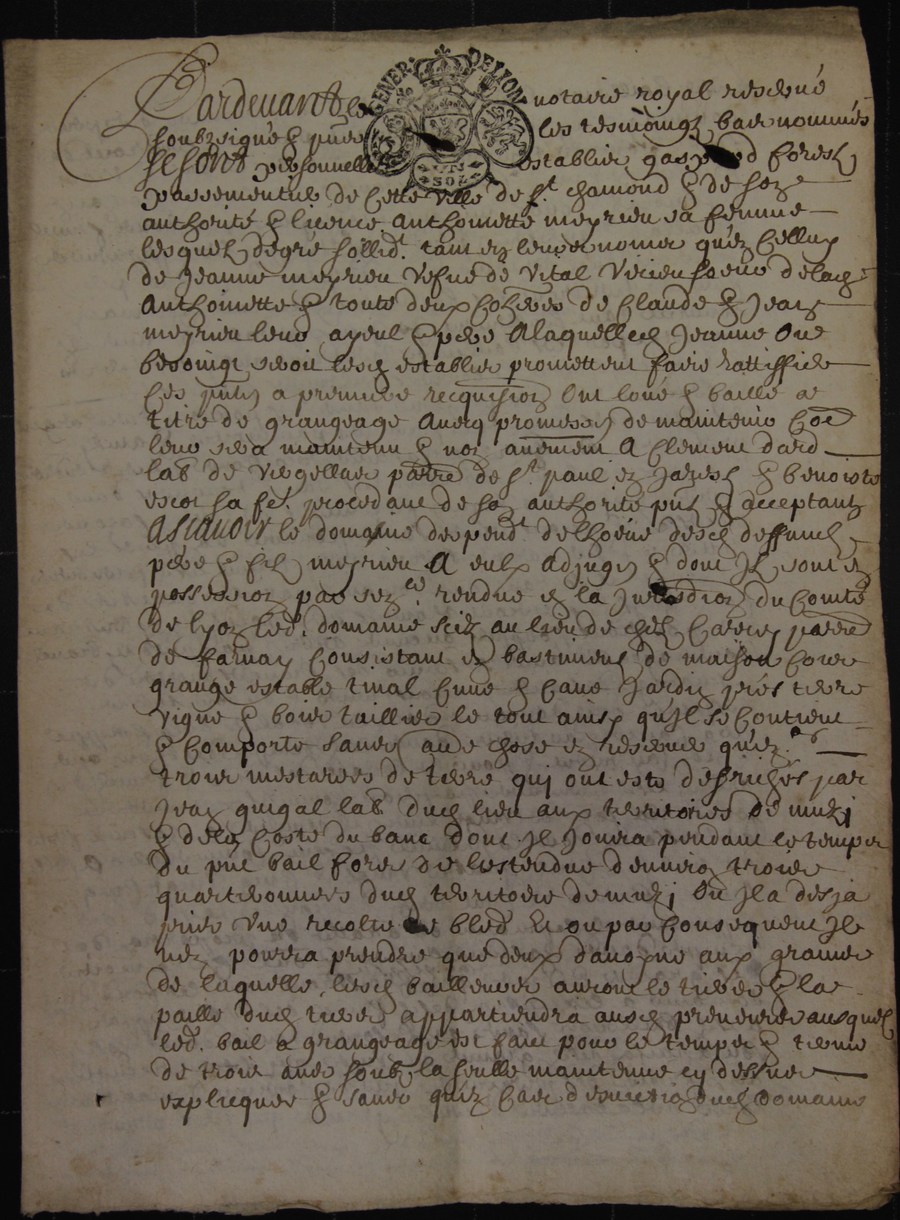 Pardevant le notaire royal reservé
soubzsigné & p̃nts les tesmoingz bas nommés
GENER. DE LION
SOLZ
se sont personnelle establis gaspard forest
passementier de cette ville de St chamond & de son
authorité & licence anthoinette meyrieu sa femme
lesquelz de gré sollidt. tant en leurs noms qu'en celluy
de Jeanne meyrieu vefve de vital virieu soeur de lad.
Anthoinette & toute deux coherres de Claude & Jean
meyrieu leurs ayeul & pere a laquelle Jeanne ou
besoingt seroit lesd establis promettent faire rattiffier
ces p̃ntes a premiere recquision ont loué & baillé a
titre de grangeage avecq promesses de maintenir coe
leur sera maintenu & non autrement A Clement dard
labr de vergellas parre de St paul en Jarest & benoiste
escot sa fe. procedant de son authorité p̃nts & acceptantz
Ascavoir le domayne despendt de lhoerie desd deffunctz
pere & filz meyrieu A eulx adjugé & dont ilz sont en
possession par sence. rendue en la jurisdion du Comté
de lyon led. domaine scis au lieu de chez Carrey parre
de farnay consistant en bastiments de maison cour
grange estable tinal cuve & cave Jardin prés terre
vigne & bois taillis le tout ainsy qu'il se contient
& comporte sans aucune chose en reserver qu'en.
trois mestarees de terre quj ont esté defrichés par
Jean guigal labr dud lieu aux territoires de muzj
& de la coste du banc dont il jouira pendant le temps
du p̃nt bail fors de lestendue denviron trois
quartreonnees dud territoire de muzj ou il a desja
prise une recolte de bled et ou par consequent il
nen pourra prendre que deux danoyne aux graines
de laquelle lesd bailleurs auront le tiers & la
paille dud tiers appartiendra ausd preneurs ausquels
led. bail a grangeage est faict pour le temps & terme
de trois ans soubz la seulle maintenue cy dessus
explicquee & sans qu'en cas deviction dud domaine